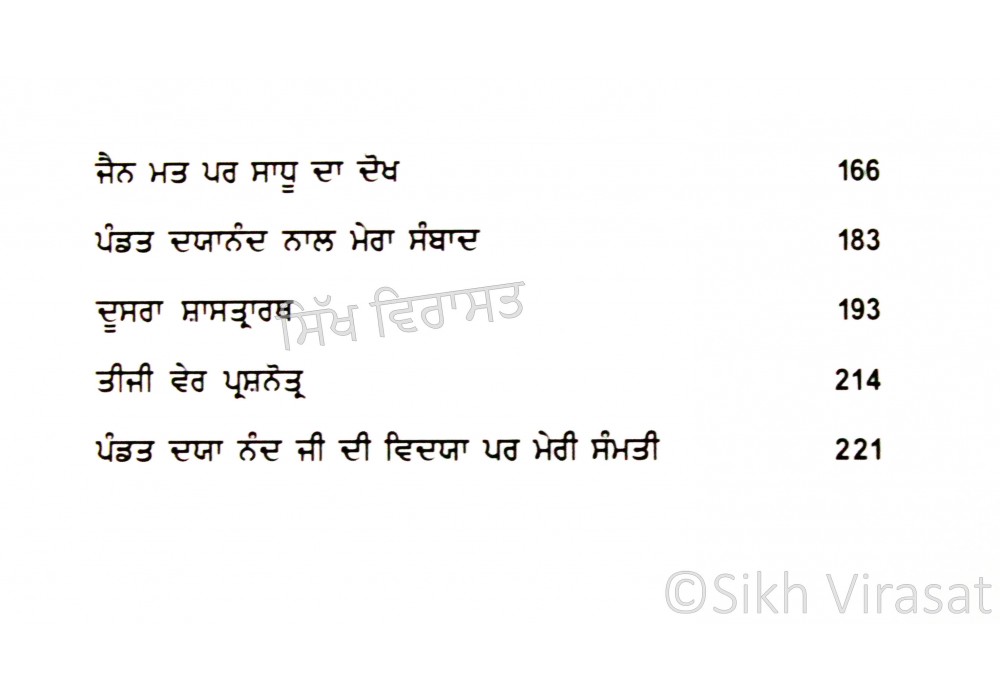 ਜੈਨ ਮਤ ਪਰ ਸਾਧੂ ਦਾ ਦੋਖ 166
ਪੰਡਤ ਦਯਾਨੰਦ ਨਾਲ ਮੇਰਾ ਸੰਬਾਦ 183
ਦੂਸਰਾ ਸ਼ਾਸਤ੍ਰਾਰਥ 193
ਸਿੱਖ ਵਿਰਾਸਤ
ਤੀਜੀ ਵੇਰ ਪ੍ਰਸ਼ਨੋਤ੍ਰ 214
ਪੰਡਤ ਦਯਾ ਨੰਦ ਜੀ ਦੀ ਵਿਦਯਾ ਪਰ ਮੇਰੀ ਸੰਮਤੀ 221
©Sikh Virasat